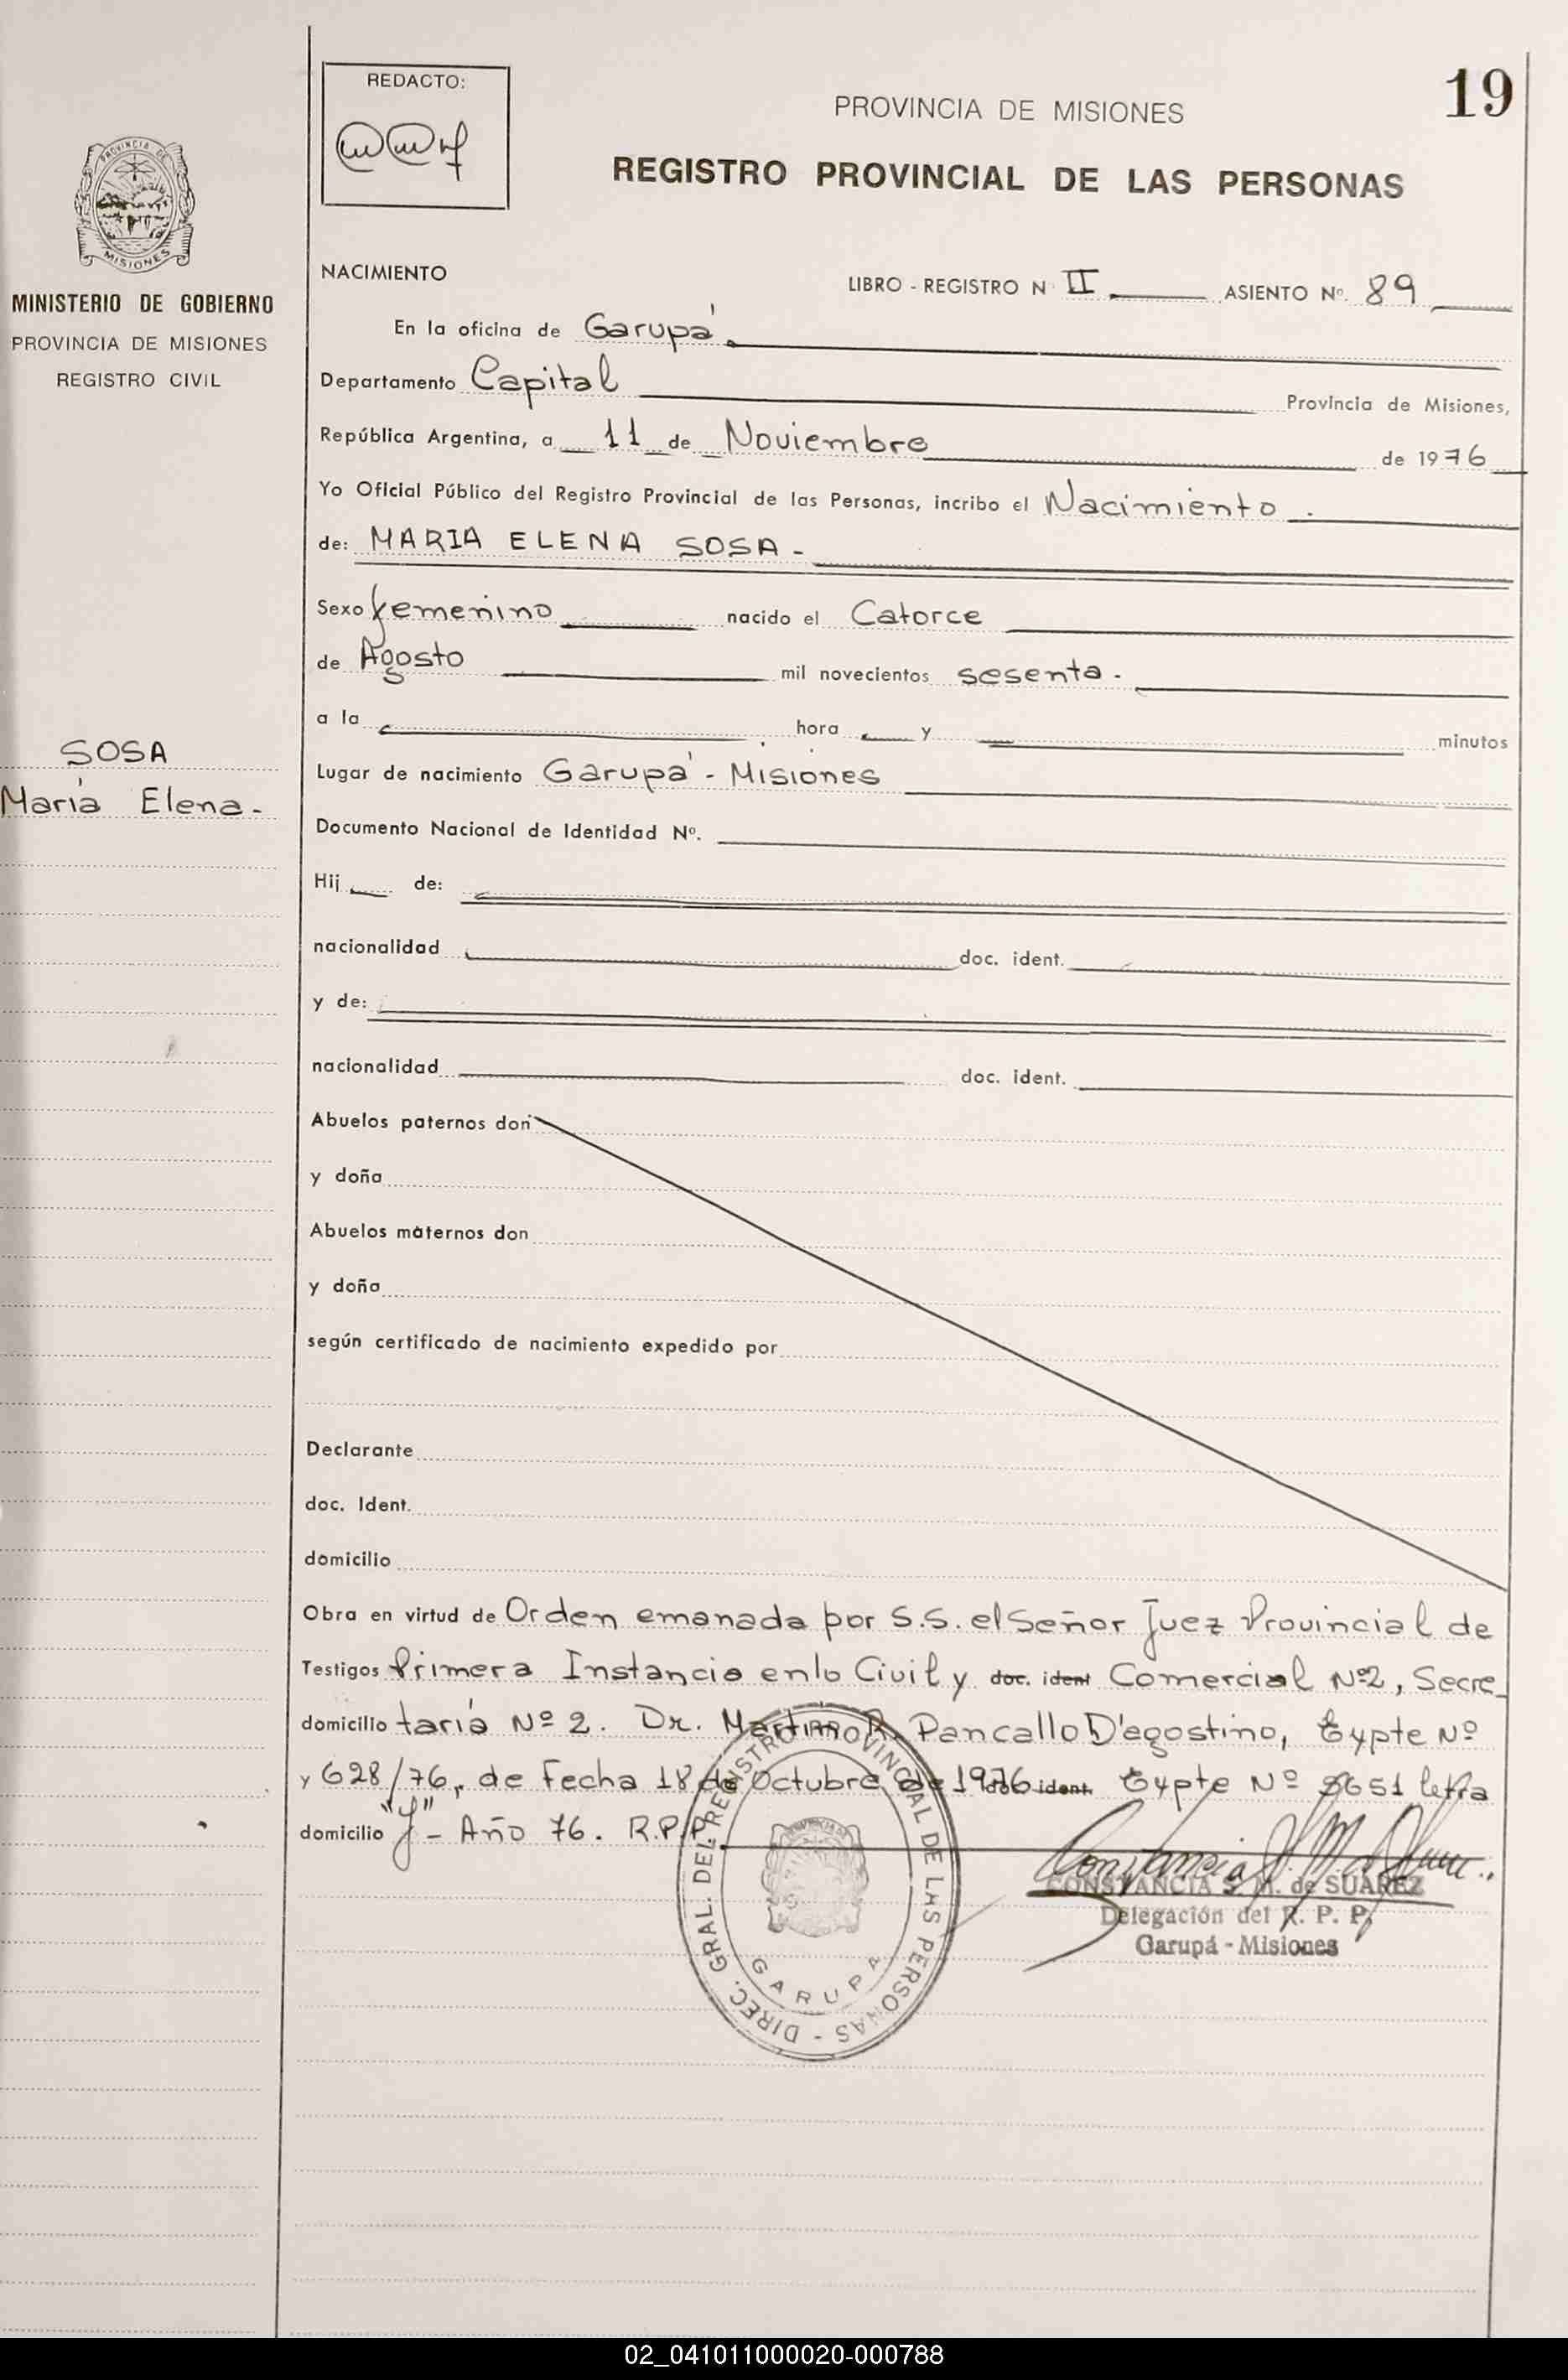 REDACTO:
19
PROVINCIA DE MISIONES
REGISTRO PROVINCIAL DE LAS PERSONAS
PROVINCIA DE
MISIONES
MINISTERIO DE GOBIERNO
PROVINCIA DE MISIONES
REGISTRO CIVIL
SOSA
María Elena-
NACIMIENTO LIBRO - REGISTRO N II ASIENTO Nº. 89
En la oficina de Garupá
Departamento Capital Provincia de Misiones,
República Argentina, a 11 de Noviembre de 1976
Yo Oficial Público del Registro Provincial de las Personas, incribo el Nacimiento.
de: MARIA ELENA SOSA-
Sexo femenino nacido el Catorce
de Agosto mil novecientos sesenta.
a la hora y minutos
Lugar de nacimiento Garupá - Misiones
Documento Nacional de Identidad Nº.
Hij de:
nacionalidad doc. ident.
y de:
nacionalidad doc. ident.
Abuelos paternos don
y doña
Abuelos maternos don
y doña
según certificado de nacimiento expedido por
Declarante
doc. Ident.
domicilio
Obra en virtud de Orden emanada por S.S. el Señor Juez Provincial de
Testigos Primera Instancia en lo Civil y doc. ident Comercial Nº2, Secre_
domicilio taría Nº 2. Dr. Martin R. Pancallo D'agostino, Expte Nº
y 628/76, de Fecha 18 de Octubre de 1976 doc. ident. Expte Nº 5651 letra
domicilio "J" - Año 76. R.P.P.
CONSTANCIA S. M. de SUAREZ
Delegación del R. P. P.
Garupá - Misiones
DIREC. GRAL. DEL REGISTRO PROVINCIAL DE LAS PERSONAS -
GARUPA
02_041011000020-000788